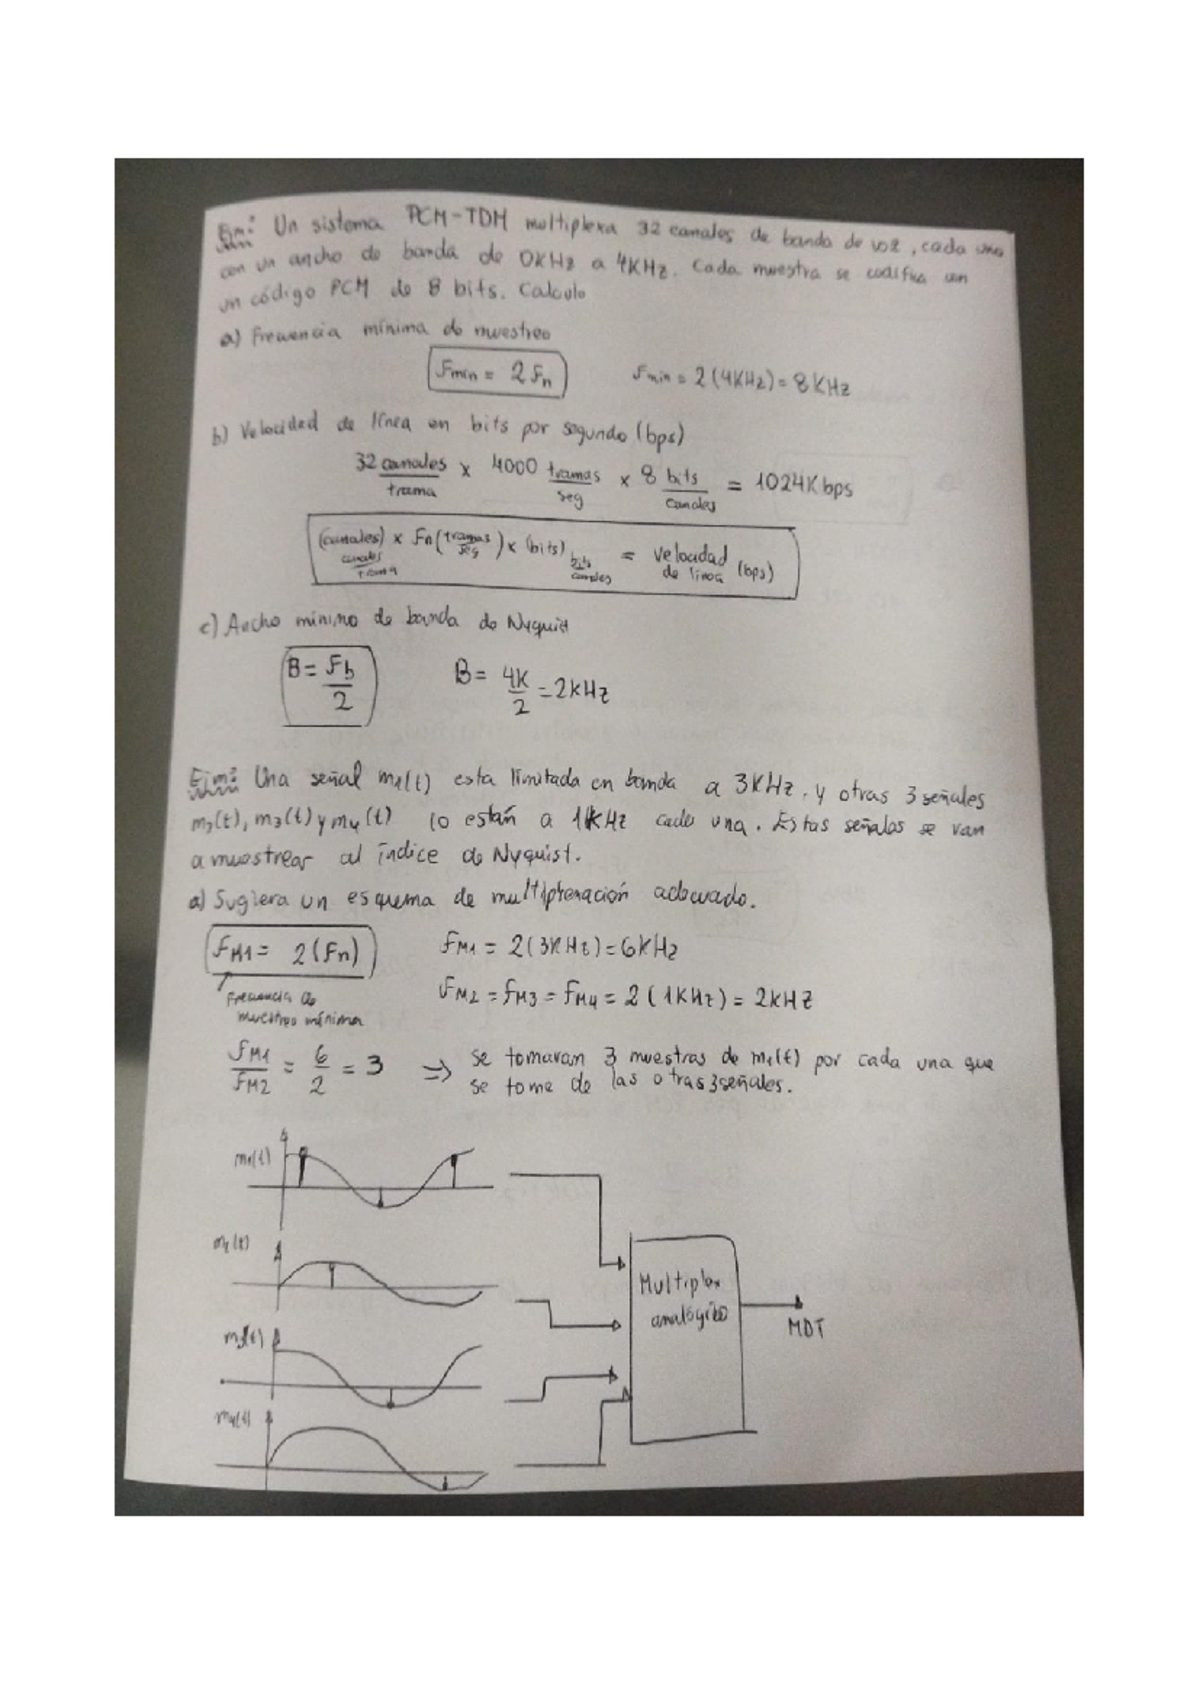 Ejm: Un sistema PCM-TDM multiplexa 32 canales de banda de voz, cada uno
con un ancho de banda de 0KHz a 4KHz. Cada muestra se codifica con
un código PCM de 8 bits. Calcule
a) Frecuencia mínima de muestreo
Fmin = 2 Fn Fmin = 2 (4KHz) = 8 KHz
b) Velocidad de línea en bits por segundo (bps)
32 canales/trama x 4000 tramas/seg x 8 bits/canales = 1024Kbps
(canales) canales/trama x Fn (tramas/seg) x (bits) bits/canales = velocidad de línea (bps)
c) Ancho mínimo de banda de Nyquist
B = Fb/2 B = 4K/2 = 2KHz
Ejm: Una señal m1(t) esta limitada en banda a 3KHz, y otras 3 señales
m2(t), m3(t) y m4(t) lo están a 1KHz cada una. Estas señales se van
a muestrear al índice de Nyquist.
a) Sugiera un esquema de multiplexación adecuado.
FM1 = 2(Fn) FM1 = 2(3KHz) = 6KHz
Frecuencia de
muestreo mínima
FM2 = FM3 = FM4 = 2 (1KHz) = 2KHz
FM1/FM2 = 6/2 = 3 ⇒ se tomaran 3 muestras de m1(t) por cada una que
se tome de las otras 3 señales.
m1(t)
m2(t)
m3(t)
m4(t)
Multiplex
analógico
MDT